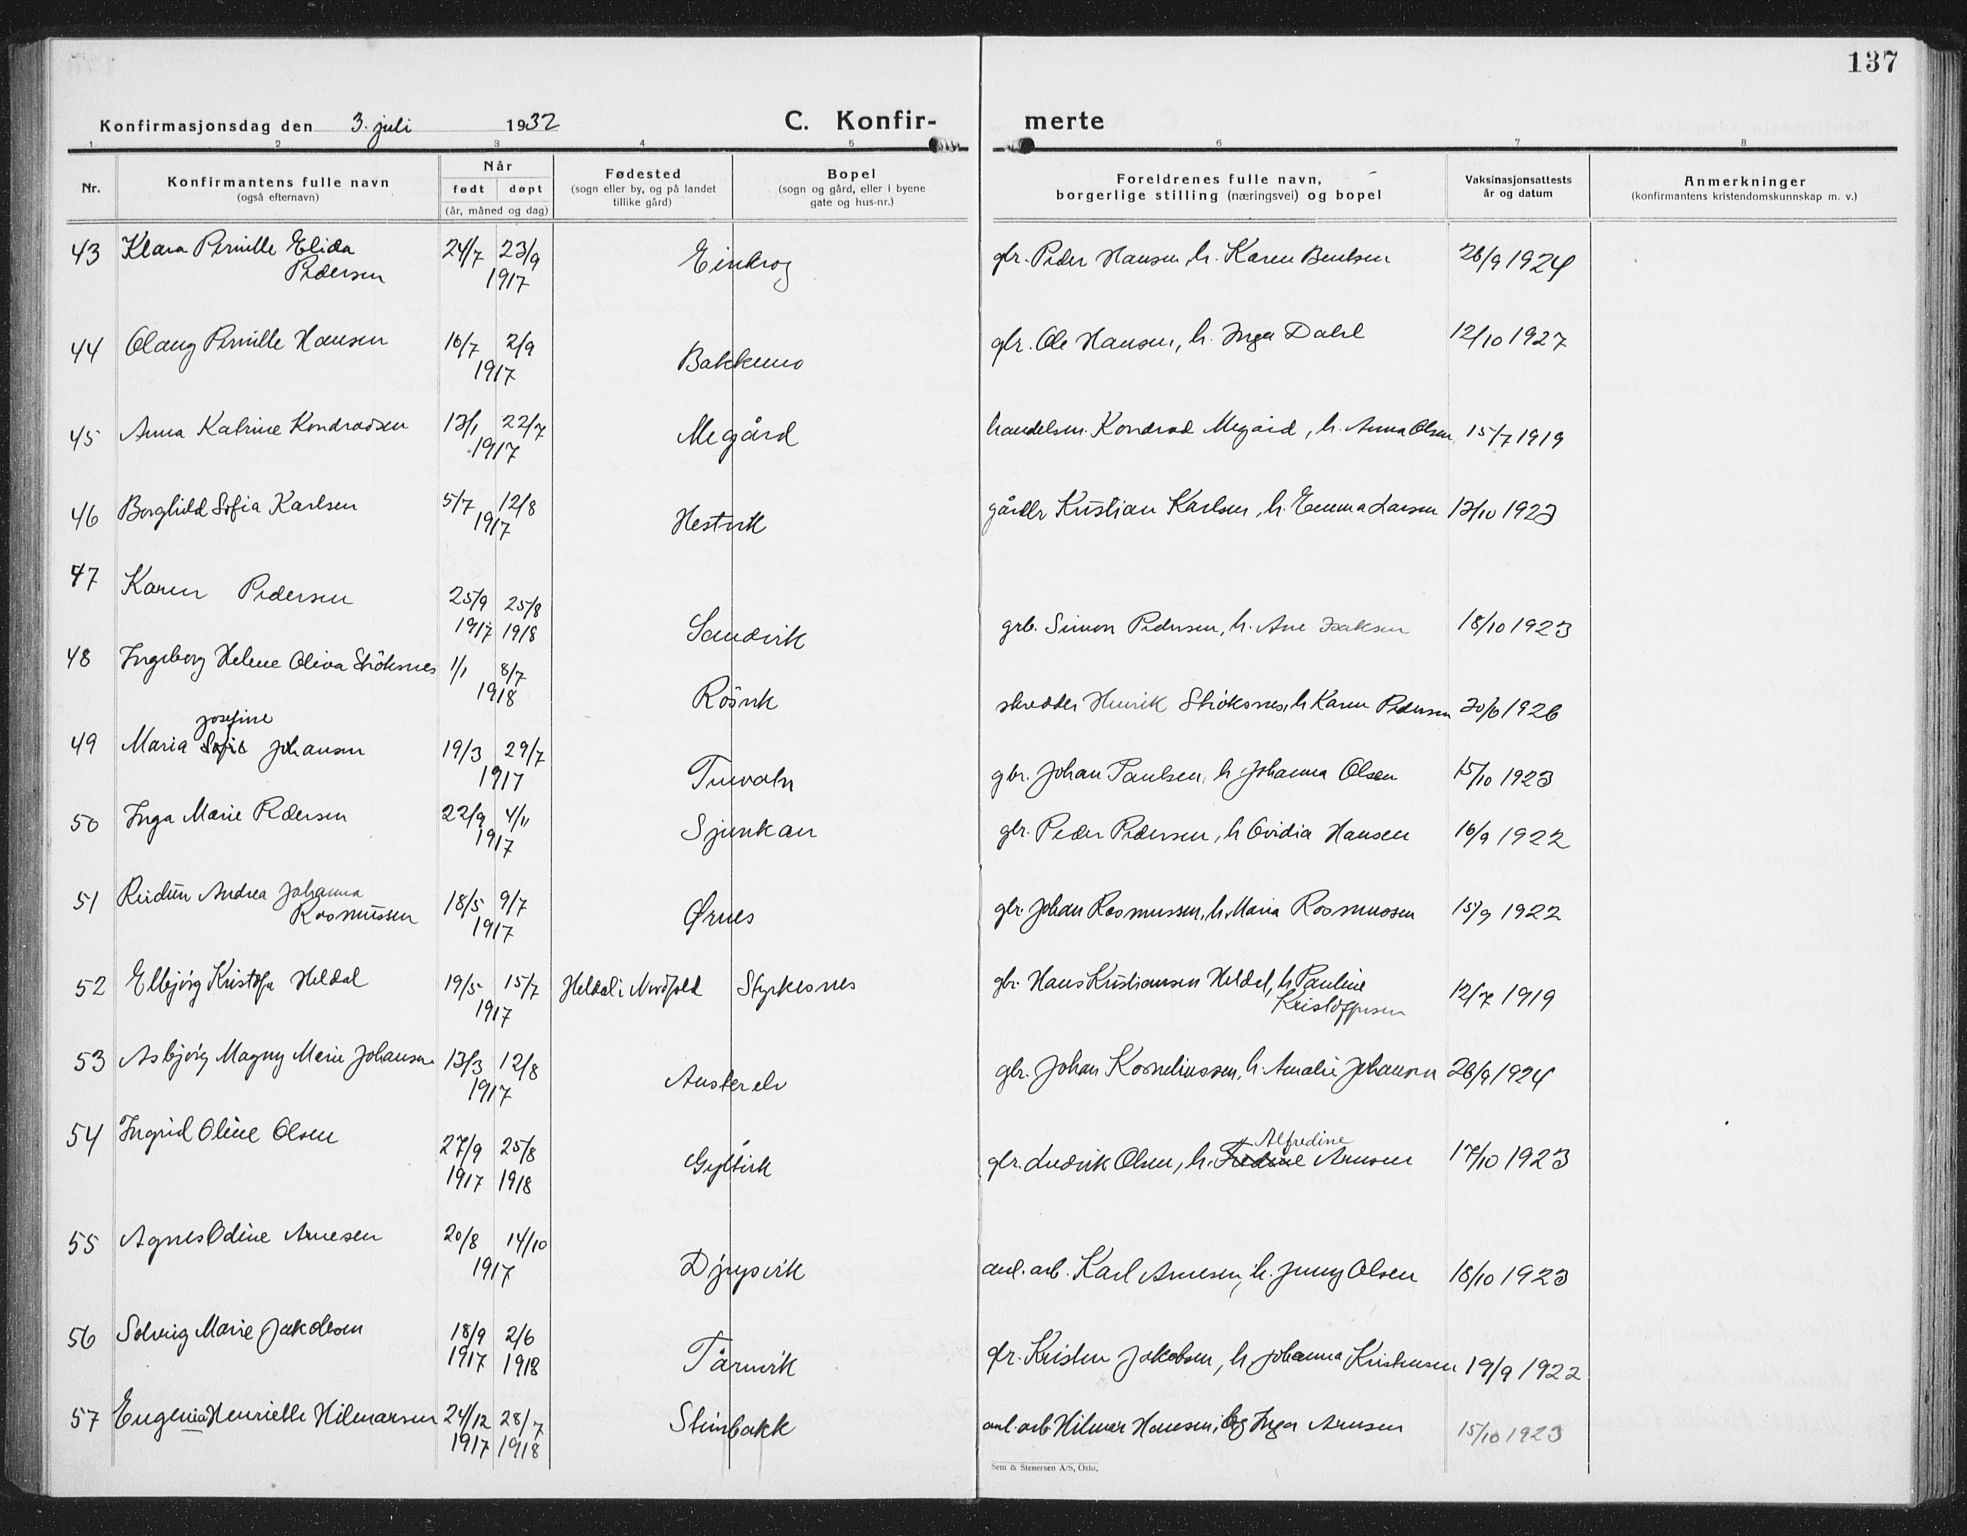 137
Konfirmasjonsdag den 3. juli 1932 C. Konfir- merte
1 2 3 4 5 6 7 8
Nr. Konfirmantens fulle navn (også efternavn) Når født døpt (år, måned og dag) Fødested (sogn eller by, og på landet tillike gård) Bopel (sogn og gård, eller i byene gate og hus-nr.) Foreldrenes fulle navn, borgerlige stilling (næringsvei) og bopel Vaksinasjonsattests år og datum Anmerkninger (konfirmantens kristendomskunnskap m. v.)
43 Klara Pernille Elida 24/7 23/9 gbr. Peder Hansen, h. Karen Bentsen 26/9 1924
Pedersen 1917
44 Olaug Pernille Hansen 16/7 2/9 gbr. Ole Hansen, h. Inga Dahl 12/10 1927
1917 Bakkemo
45 Anna Katrine Kondradsen 13/1 22/7 Megård handelsm. Kondrad Megård, h. Anna Olsen 15/7 1919
1917
46 Borghild Sofia Karlsen 5/7 12/8 Hestvik gårdbr Kristian Karlsen, h. Emma Larsen 13/10 1923
1917
47 Karen Pedersen 25/9 25/8
1917 1918 Sandvik grb. Simon Pedersen, h. Ane Isaksen 18/10 1923
48 Ingeborg Helene Oliva Ströksnes 1/1 8/7
1918 Rösvik skredder Henrik Ströksnes, h Karen Pedersen 30/6 1926
josefine
49 Maria Sofie Johansen 19/3 29/7
1917 gbr. Johan Paulsen, h Johanna Olsen 15/10 1923
50 Inga Marie Pedersen 22/9 4/11 Sjunkan gbr. Peder Pedersen, h Ovidia Hansen 16/9 1922
1917
51 Reidun Andrea Johanna 18/5 9/7 Ørnes gbr. Johan Rasmussen, h. Maria Rasmussen 15/9 1922
Rasmussen 1917
52 Elbjörg Kristofa Heldal 19/5 15/7 Heldal i Nordfold Styrkesnes gbr. Hans Kristiansen Heldal, h Pauline 12/7 1919
1917 Kristoffersen
53 Asbjörg Magny Marie Johansen 13/3 12/8 Austerelv gbr. Johan Korneliussen, h. Amalie Johansen 26/9 1924
1917
54 Ingrid Oline Olsen Alfredine
27/9 25/8 Gyltvik gbr. Ludvik Olsen, h. Fredine Arnesen 17/10 1923
1917 1918
55 Agnes Odine Arnesen 20/8 14/10
1917 Djupvik anl. arb. Karl Arnesen, h. Jenny Olsen 18/10 1923
56 Solveig Marie Jakobsen 18/9 2/6
1917 1918 Tårnvik gbr. Kristen Jakobsen, h. Johanna Kristensen 19/9 1922
57 Eugenia Henriette Hilmarsen 24/12 28/7 Stenbakk anl. arb. Hilmar Hansen, og Inga Arnesen 15/10 1923
1917 1918
Sem & Stenersen A/S, Oslo.